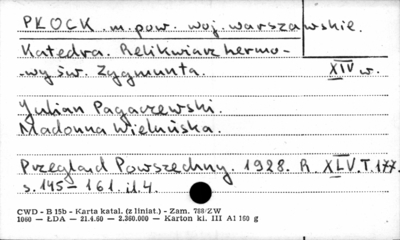 PŁOCK. m. pow. woj. warszawskie.
Katedra. Relikwiarz hermo-
-wy św. Zygmunta. XIV w.
Julian Pagaczewski.
Madonna Wieluńska.
Przegląd Powszechny. 1928. R. XLV. T. 177.
s. 145 - 161. il. 4.
CWD - B 15b - Karta katal. (z liniat.) - Zam. 788/ZW
1060 — ŁDA — 21.4.60 — 2.360.000 — Karton kl. III A1 160 g